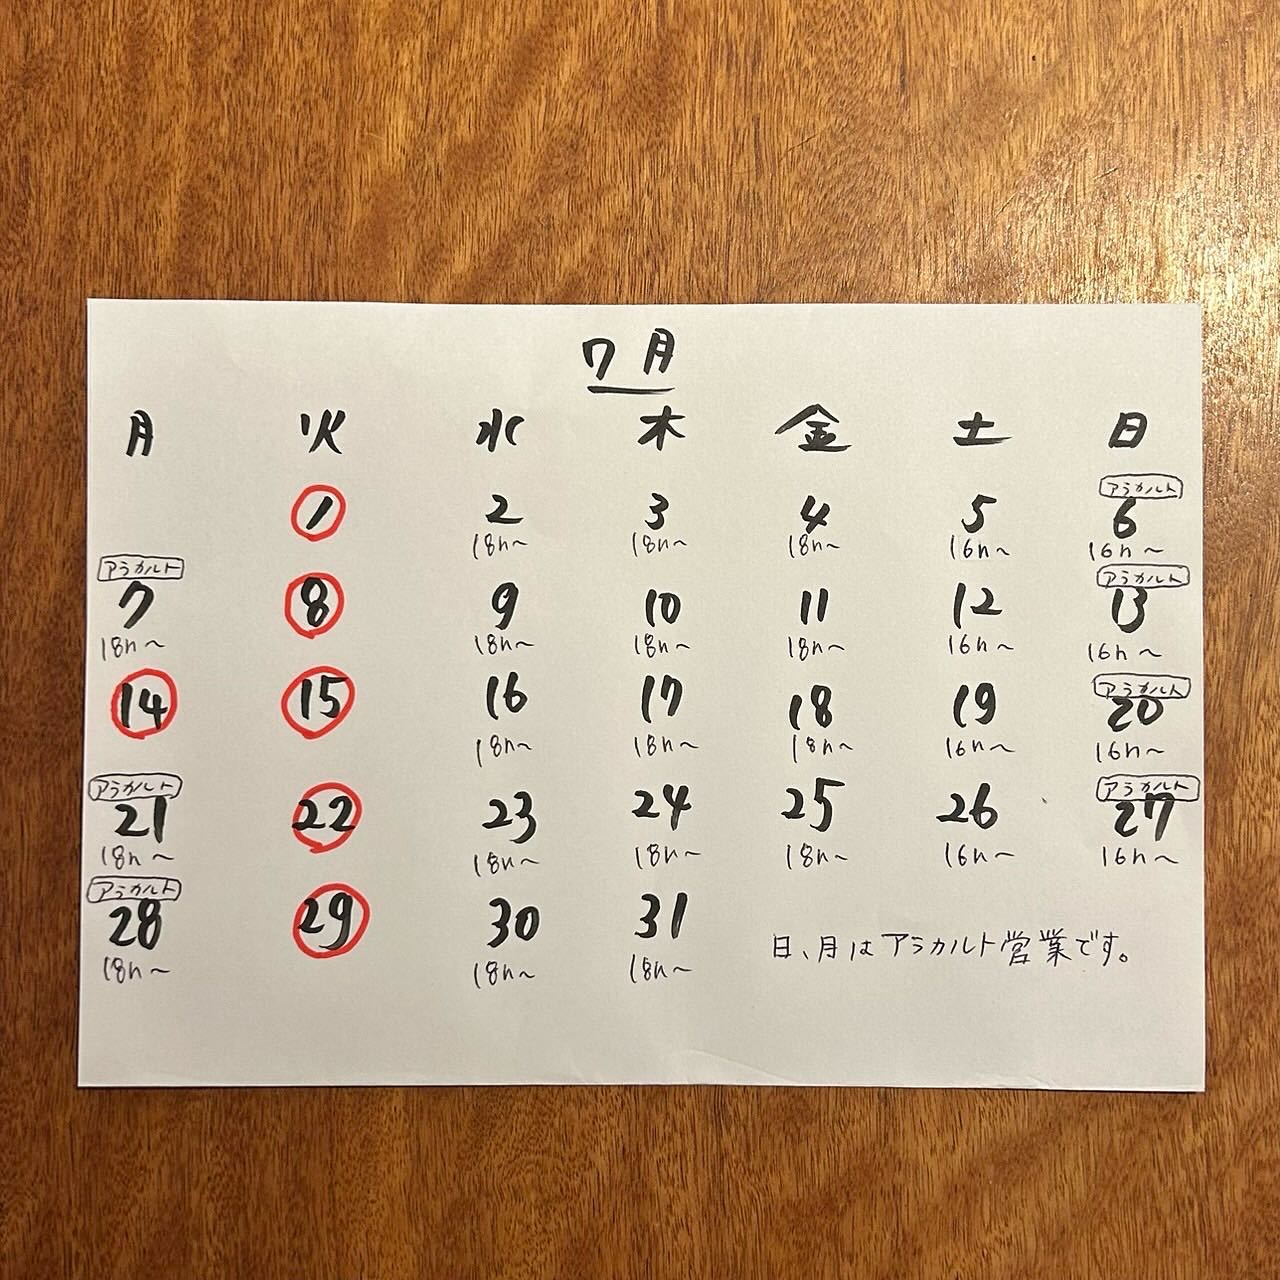 7月
月 火 水 木 金 土 日
アラカルト
1 2 3 4 5 6
18h〜 18h〜 18h〜 16h〜 16h〜
アラカルト アラカルト
7 8 9 10 11 12 13
18h〜 18h〜 18h〜 18h〜 16h〜 16h〜
アラカルト
14 15 16 17 18 19 20
18h〜 18h〜 18h〜 16h〜 16h〜
アラカルト アラカルト
21 22 23 24 25 26 27
18h〜 18h〜 18h〜 18h〜 16h〜 16h〜
アラカルト
28 29 30 31
18h〜 18h〜 18h〜
日、月はアラカルト営業です。